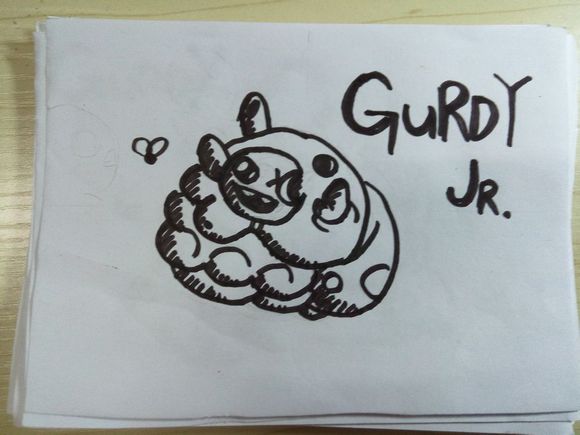 GURDY
JR.